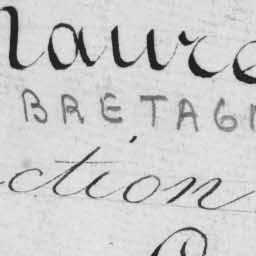 Maure
BRETAGN
ction